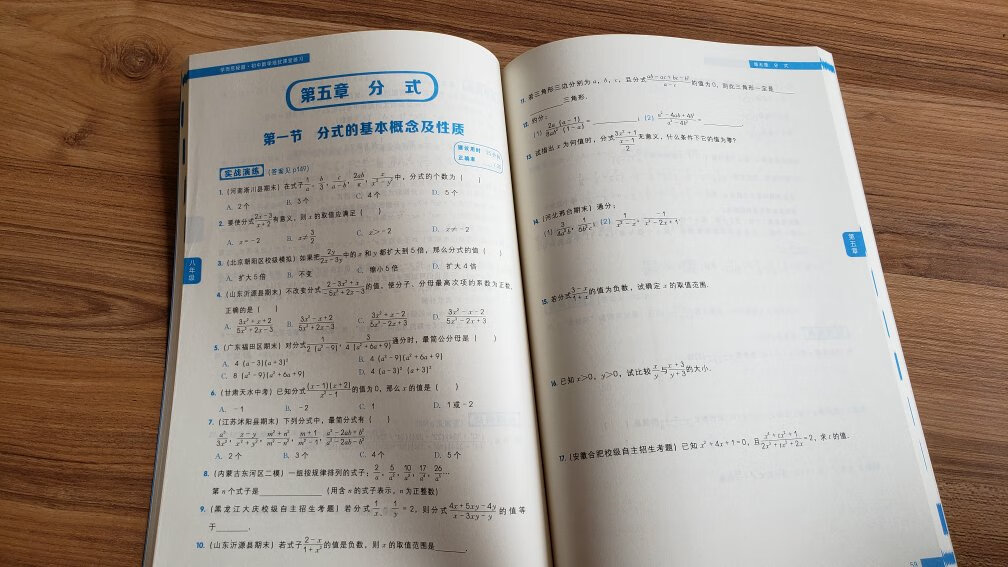 学而思秘籍·初中数学培优课堂练习
第五章 分 式
第一节 分式的基本概念及性质
建议用时
正确率
实战演练 (答案见 p149)
1. (河南淅川县期末) 在式子 1/a, b/3, c/(a-b), 2ab/π, x/(x²-y²) 中, 分式的个数为 ( )
A. 2个 B. 3个 C. 4个 D. 5个
2. 要使分式 (2x-3)/(x+2) 有意义, 则 x 的取值应满足 ( )
A. x=-2 B. x≠3/2 C. x>-2 D. x≠-2
3. (北京朝阳区校级模拟) 如果把 2y/(2x-3y) 中的 x 和 y 都扩大到5倍, 那么分式的值 ( )
A. 扩大5倍 B. 不变 C. 缩小5倍 D. 扩大4倍
4. (山东沂源县期末) 不改变分式 (2-3x²+x)/(-5x²+2x-3) 的值, 使分子、分母最高次项的系数为正数,
正确的是 ( )
A. (3x²+x+2)/(5x²+2x-3) B. (3x²-x+2)/(5x²+2x-3) C. (3x²+x-2)/(5x²-2x+3) D. (3x²-x-2)/(5x²-2x+3)
5. (广东福田区期末) 对分式 1/(2(a²-9)), 3/(4(a²+6a+9)) 通分时, 最简公分母是 ( )
A. 4(a-3)(a+3)² B. 4(a²-9)(a²+6a+9)
C. 8(a²-9)(a²+6a+9) D. 4(a-3)²(a+3)²
6. (甘肃天水中考) 已知分式 (x-1)(x+2)/(x²-1) 的值为0, 那么 x 的值是 ( )
A. -1 B. -2 C. 1 D. 1或-2
7. (江苏沭阳县期末) 下列分式中, 最简分式有 ( )
a³/3x², (x-y)/(x²+y²), (m²+n²)/(m²-n²), (m+1)/(m²-1), (a²-2ab+b²)/(a²-2ab-b²)
A. 2个 B. 3个 C. 4个 D. 5个
8. (内蒙古东河区二模) 一组按规律排列的式子: 2/a, 5/a², 10/a³, 17/a⁴, 26/a⁵…
第 n 个式子是 (用含 n 的式子表示, n 为正整数)
9. (黑龙江大庆校级自主招生考题) 若分式 1/x - 1/y = 2, 则分式 (4x+5xy-4y)/(x-3xy-y) 的值等
于.
10. (山东沂源县期末) 若式子 (2-x)/(1+x²) 的值是负数, 则 x 的取值范围是.
八年级
第五章 分 式
11. 若三角形三边分别为 a, b, c, 且分式 (ab-ac+bc-b²)/(a-c) 的值为0, 则此三角形一定是
三角形.
12. 约分:
(1) 2a(a-1)/(8ab²(1-a)) = ; (2) (a²-4ab+4b²)/(a²-4b²) = .
13. 试指出 x 为何值时, 分式 (3x²+1)/((x-1)/2) 无意义, 什么条件下它的值为零?
14. (河北邢台期末) 通分:
(1) 3/4a²b, 1/6b²c; (2) 1/(x²-x), (x²-1)/(x²-2x+1).
15. 若分式 (3-x)/(1+x) 的值为负数, 试确定 x 的取值范围.
16. 已知 x>0, y>0, 试比较 x/y 与 (x+3)/(y+3) 的大小.
17. (安徽合肥校级自主招生考题) 已知 x²+4x+1=0, 且 (x⁴+tx²+1)/(2x³+tx²+2x) = 2, 求 t 的值.
第五章
59